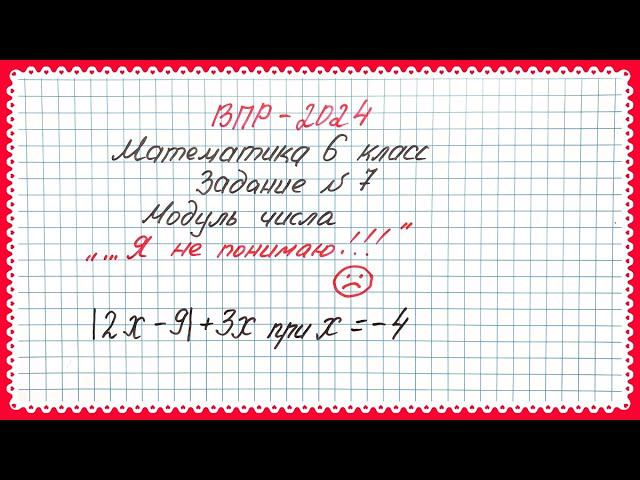 ВПР - 2024
Математика 6 класс
Задание № 7
Модуль числа
„... Я не понимаю!!!"
|2x - 9| + 3x при x = -4